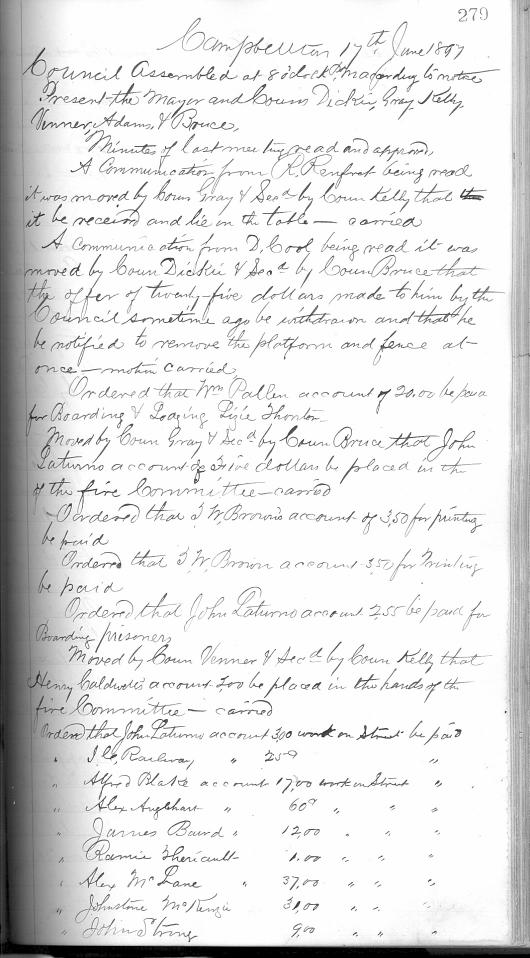 279
Campbellton 17th June 1897
Council Assembled at 8 o'clock P.M. according to notice
Present the Mayor and Couns Dickie, Gray, Kelly
Venner, Adams, & Bruce.
Minutes of last meeting read and approved.
A Communication from R. Renfret being read
it was moved by Coun Gray & Secd by Coun Kelly that the
it be received and lie on the table — carried
A communication from D. Cool being read it was
moved by Coun Dickie & Secd by Coun Bruce that
the offer of twenty-five dollars made to him by the
Council sometime ago be withdrawn and that he
be notified to remove the platform and fence at
once — motion carried
Ordered that Wm Pallen account of 20.00 be paid
for Boarding & Lodging Lizie Thonton
Moved by Coun Gray & Secd by Coun Bruce that John
Laturno account of Five dollars be placed in the
of the fire Committee — carried
Ordered that T. W. Brown's account of 3,50 for printing
be paid
Ordered that T. W. Brown account 350 for Printing
be paid
Ordered that John Laturno account 2,55 be paid for
Boarding prisoners
Moved by Coun Venner & Secd by Coun Kelly that
Henry Caldwell's account be placed in the hands of the
fire Committee — carried
Ordered that John Laturno account 3,00 work on Street be paid
" I. C. Railway " "
" Alfred Blake account 17,00 work on Street "
" Alex " " " "
" James Baird " 12,00 " " "
" Ramie Theriault 1.00 " " "
" Alex McLane " 37,00 " " "
" Johnstone McKenzie 31,00 " " "
" John Strong 9,00 " " "